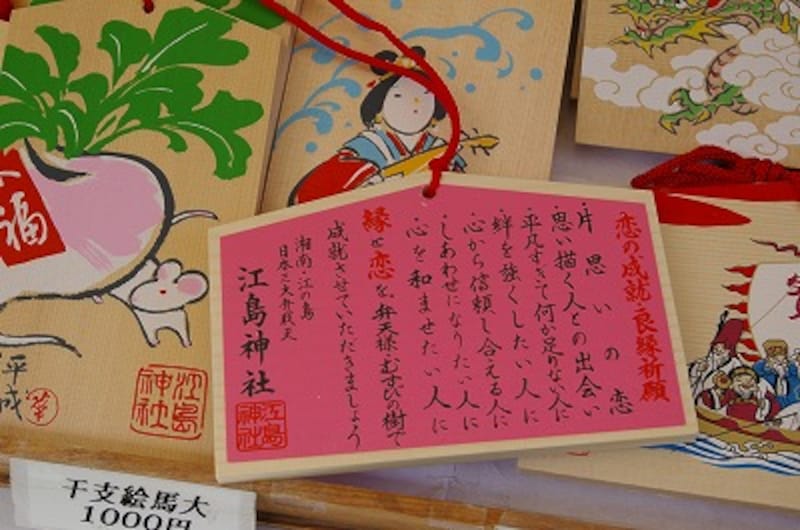 恋の成就・良縁祈願
片思いの恋
思い描く人との出会い
平凡すぎて何か足りない人に
絆を強くしたい人に
心から信頼し合える人に
しあわせになりたい人に
心を和ませたい人に
縁と恋を、弁天様・むすびの樹で
成就させていただきましょう
湘南・江の島
日本三大弁財天
江島神社
江島神社
福
平成
江島神社
干支絵馬大
1000円